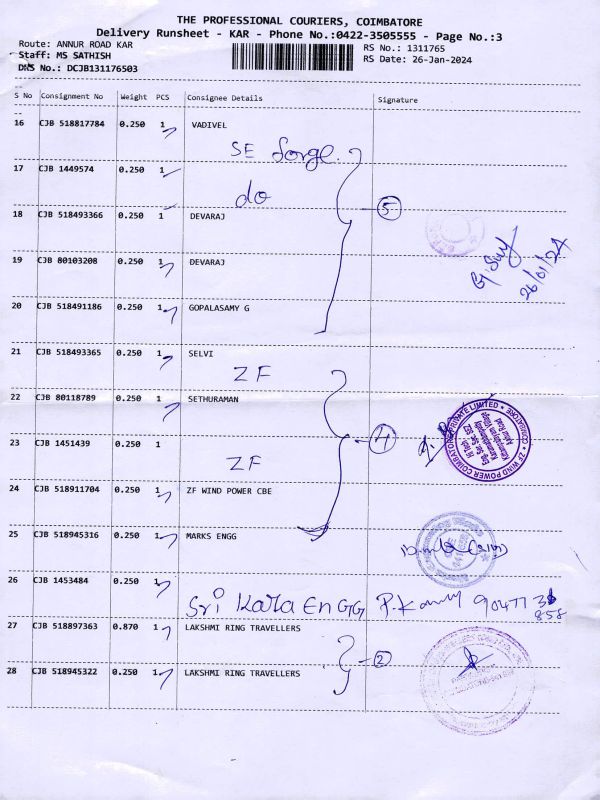 THE PROFESSIONAL COURIERS, COIMBATORE
Delivery Runsheet - KAR - Phone No.:0422-3505555 - Page No.:3
Route: ANNUR ROAD KAR
RS No.: 1311765
Staff: MS SATHISH
RS Date: 26-Jan-2024
DNS No.: DCJB131176503
S No Consignment No Weight PCS Consignee Details Signature
16 CJB 518817784 0.250 1 VADIVEL
SE forge.
17 CJB 1449574 0.250 1
do
5
18 CJB 518493366 0.250 1 DEVARAJ
26/01/24
19 CJB 80103208 0.250 1 DEVARAJ
20 CJB 518491186 0.250 1 GOPALASAMY G
21 CJB 518493365 0.250 1 SELVI
ZF
22 CJB 80118789 0.250 1 SETHURAMAN
4
ZF WIND POWER COIMBATORE PRIVATE LIMITED
23 CJB 1451439 0.250 1
ZF
24 CJB 518911704 0.250 1 ZF WIND POWER CBE
25 CJB 518945316 0.250 1 MARKS ENGG
26 CJB 1453484 0.250 1
Sri Kara EnGG
27 CJB 518897363 0.870 1 LAKSHMI RING TRAVELLERS
2
28 CJB 518945322 0.250 1 LAKSHMI RING TRAVELLERS